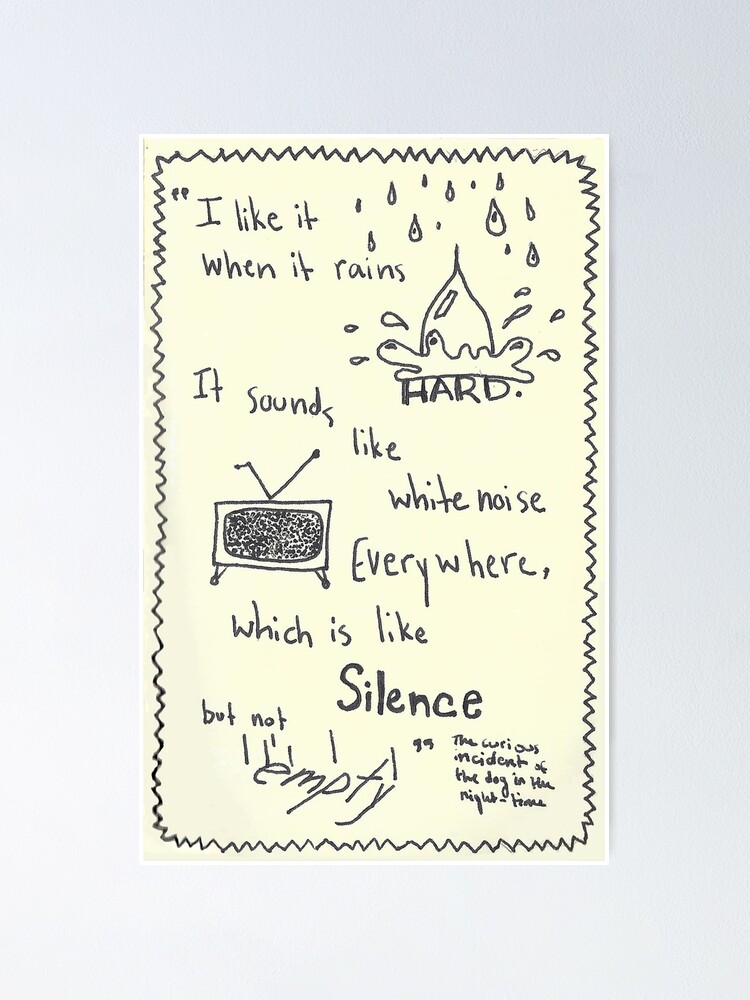 " I like it
when it rains
HARD.
It sounds
like
white noise
Everywhere,
which is like
Silence
but not
empty "
The curious
incident of
the dog in the
night-time